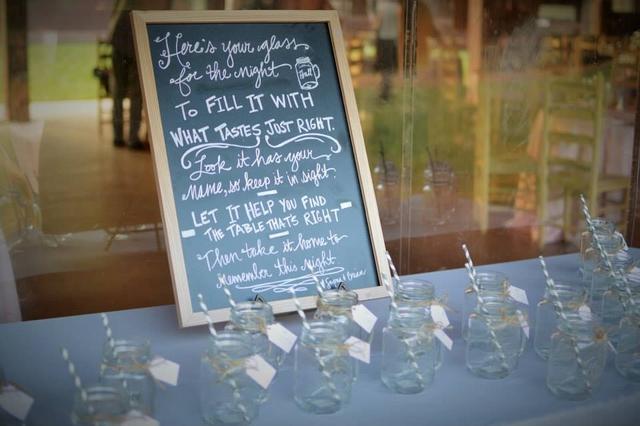 Here's your glass
for the night
TO FILL IT WITH
WHAT TASTES JUST RIGHT.
Look it has your
name, so keep it in sight.
LET IT HELP YOU FIND
THE TABLE THAT'S RIGHT
Then take it home to
remember this night